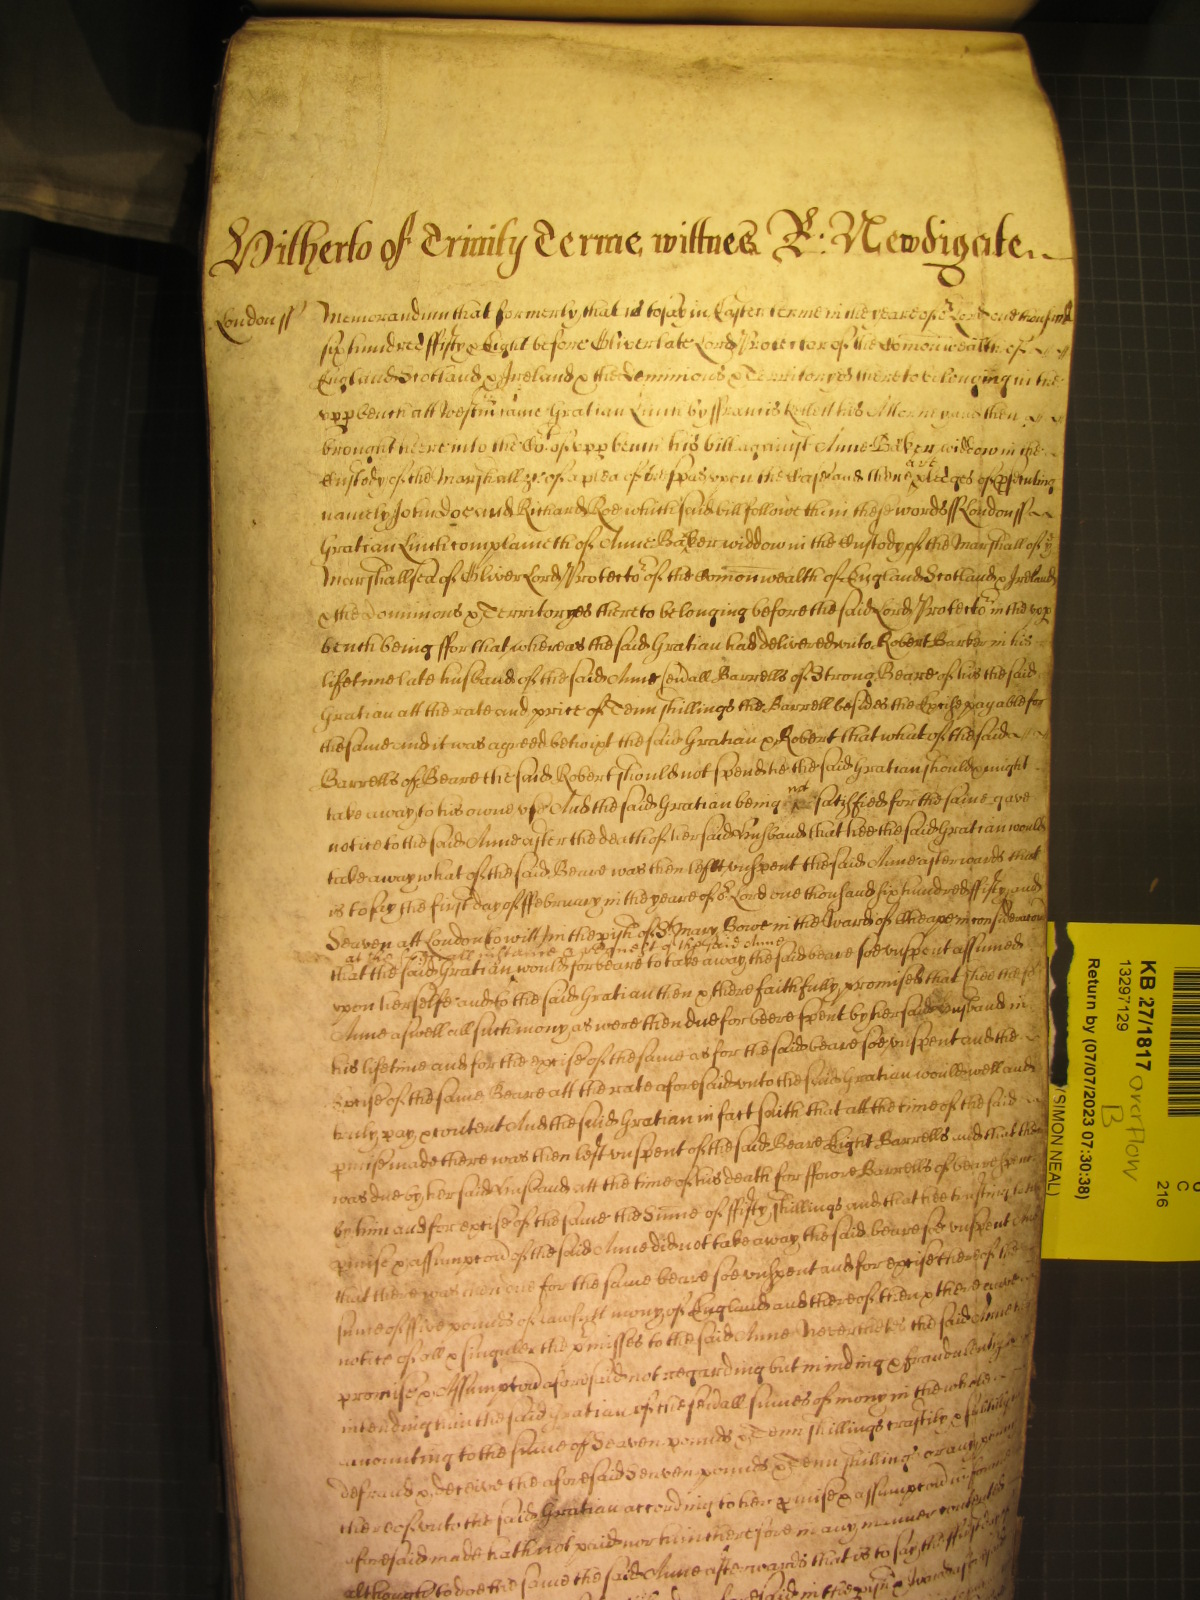 Hitherto of Trinity Terme wittnes R: Newdigate
London ss Memorandum that formerly that is to say in Easter terme in the yeare of or Lord one thousand
six hundred ffifty & Eight before Oliver late Lord Protector of the Comonwealth of
England Scotland & Ireland & the Dominions & Territoryes thereto belonging in the
vpp bench att Westmr came Gratian Linch by ffrancis his Attorney and then
brought here into the Cort of vpp bench his bill against Anne Baker widdow in the
Custody of the Marshall &c of a plea of trespas vpon the Case and there are pledges of psecuting
namely John Doe and Richard Roe which said bill followeth in these words ss London ss
Gratian Linch complaineth of Anne Baker widdow in the Custody of the Marshall of ye
Marshallsea of Oliver Lord Protector of the Comonwealth of England Scotland & Ireland
& the Dominions & Territoryes thereto belonging before the said Lord Protector in the vpp
bench being ffor that whereas the said Gratian had delivered vnto Robert Barker in his
lifetime late husband of the said Anne sevall Barrells of Strong Beare of his the said
Gratian att the rate and price of Tenn shillings the Barrell besides the Excise payable for
the same and it was agreed betwixt the said Gratian & Robert that what of the said
Barrells of Beare the said Robert should not spend he the said Gratian should & might
take away to his owne vse And the said Gratian being not satisfied for the same gave
notice to the said Anne after the death of her said Husband that hee the said Gratian would
take away what of the said Beare was then lefft vnspent the said Anne afterwards that
is to say the first day of ffebruary in the yeare of or Lord one thousand six hundred ffifty and
Seaven att London to witt in the pish of St Mary Bowe in the Ward of Cheape in consideracon
at the instance & request of the said Anne
that the said Gratian would forbeare to take away the said beare soe vnspent assumed
vpon herselfe and to the said Gratian then & there faithfully promised that shee the sd
Anne aswell all such mony as were then due for beere spent by her said Husband in
his lifetime and for the excise of the same as for the said beare soe vnspent and the
Excise of the same Beare att the rate aforesaid vnto the said Gratian would well and
truly pay & content And the said Gratian in fact saith that att the time of the said
pmise made there was then left vnspent of the said Beare Eight Barrells and that there
was due by her said Husband att the time of his death for ffowre Barrells of beare spent
by him and for excise of the same the Sume of ffifty shillings and that hee trusting to the
pmise & assumpcon of the said Anne did not take away the said beare soe vnspent And
that there was then due for the same beare soe vnspent and for excise thereof the
sume of ffive pounds of lawfull mony of England and thereof then & there gave
notice of all & singuler the pmisses to the said Anne Neverthelés the said Anne her
promise & Assumpcon aforesaid not regarding but minding & fraudulently
intending him the said Gratian of the sevall sumes of mony in the whole
amounting to the sume of Seaven pounds & Tenn shillings craftily & subtilly to
defraud & deceive the aforesaid Seaven pounds & Tenn shillings or any penny
thereof vnto the said Gratian according to her pmise & assumpcon in forme
aforesaid made hath not paid nor him therefore in any manner contented
although to doe the same the said Anne afterwards that is to say the ffirst day of
said in the pish & Ward aforesaid
KB 27/1817
13297129
Return by (07/07/2023 07:30:38)
(SIMON NEAL)
overflow
B
C
216